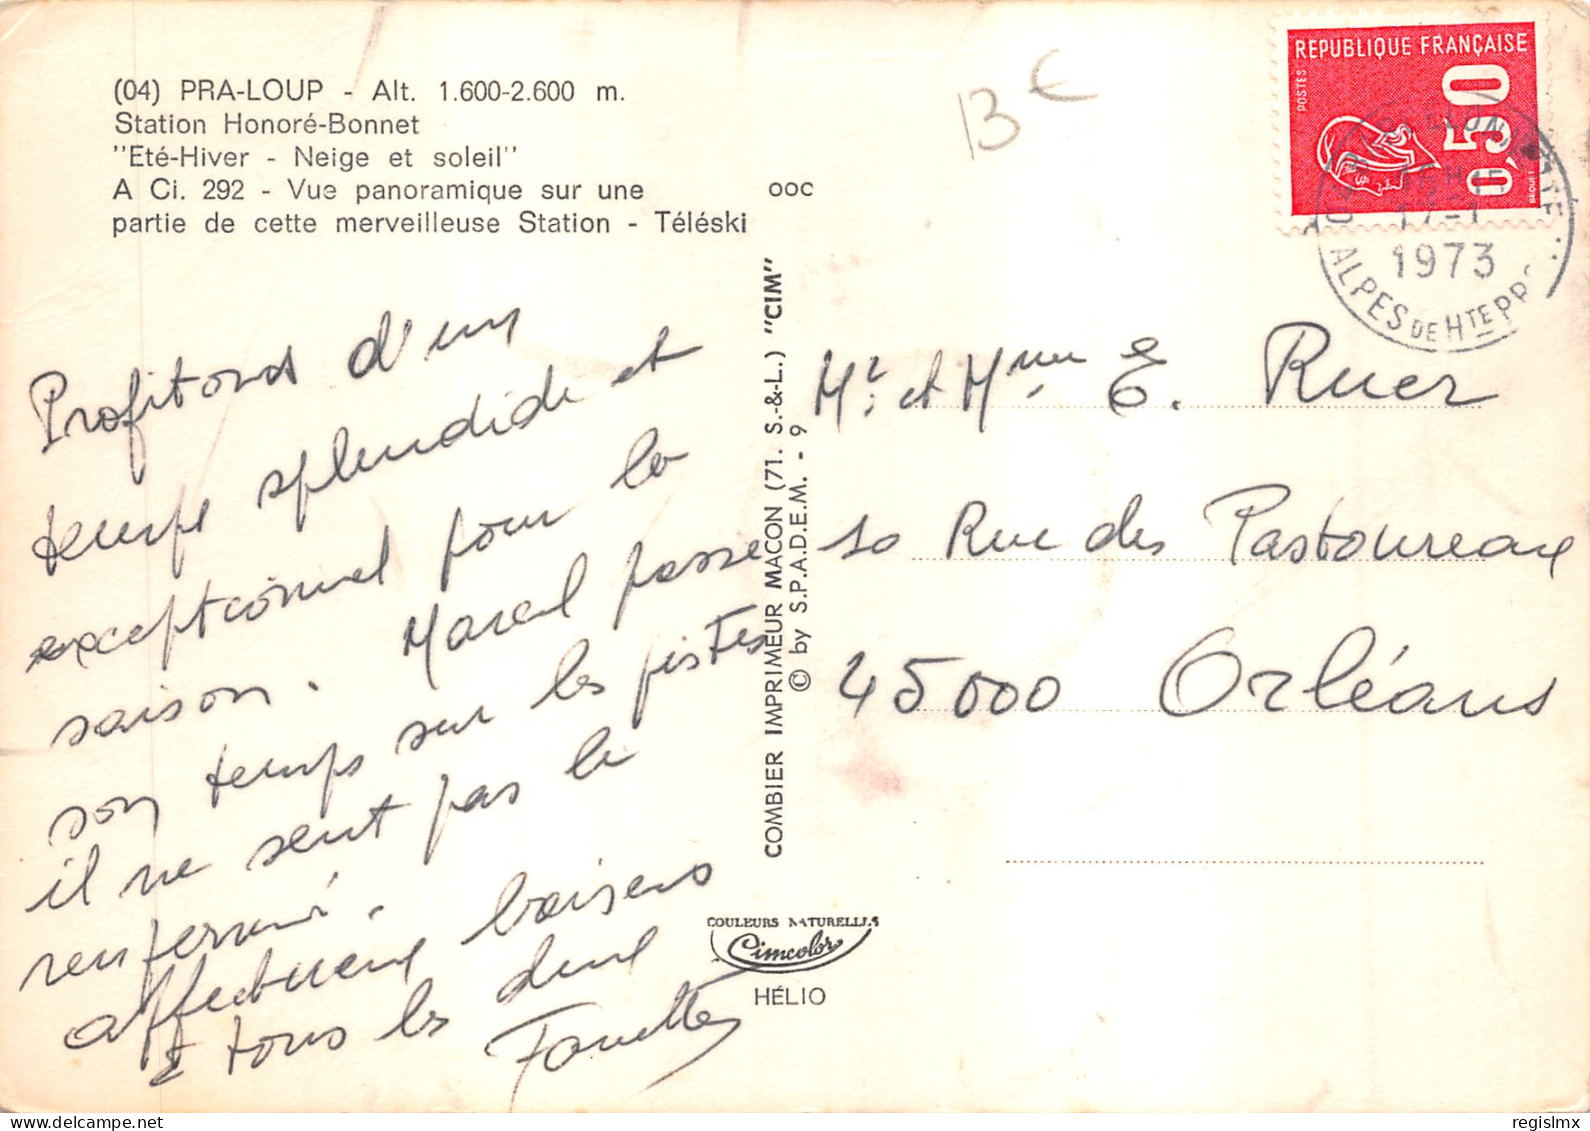 (04) PRA-LOUP - Alt. 1.600-2.600 m.
Station Honoré-Bonnet
"Eté-Hiver - Neige et soleil"
A Ci. 292 - Vue panoramique sur une
partie de cette merveilleuse Station - Téléski
OOC
13 €
RÉPUBLIQUE FRANÇAISE
POSTES
0,50
BEQUET
17-1
1973
ALPES DE HTE PR
Profitons d'un
temps splendide et
exceptionnel pour la
saison. Marcel passe
son temps sur les pistes
il ne sent pas le
renfermé.
affectueux baisers
à tous les deux
Fanette
COMBIER IMPRIMEUR MACON (71. S.-&-L.) "CIM"
© by S.P.A.D.E.M. - 9
COULEURS NATURELLES
Cimcolor
HÉLIO
Mr. et Mme E. Ruer
10 Rue des Pastoureaux
45000 Orléans
delcampe.net
regislmx